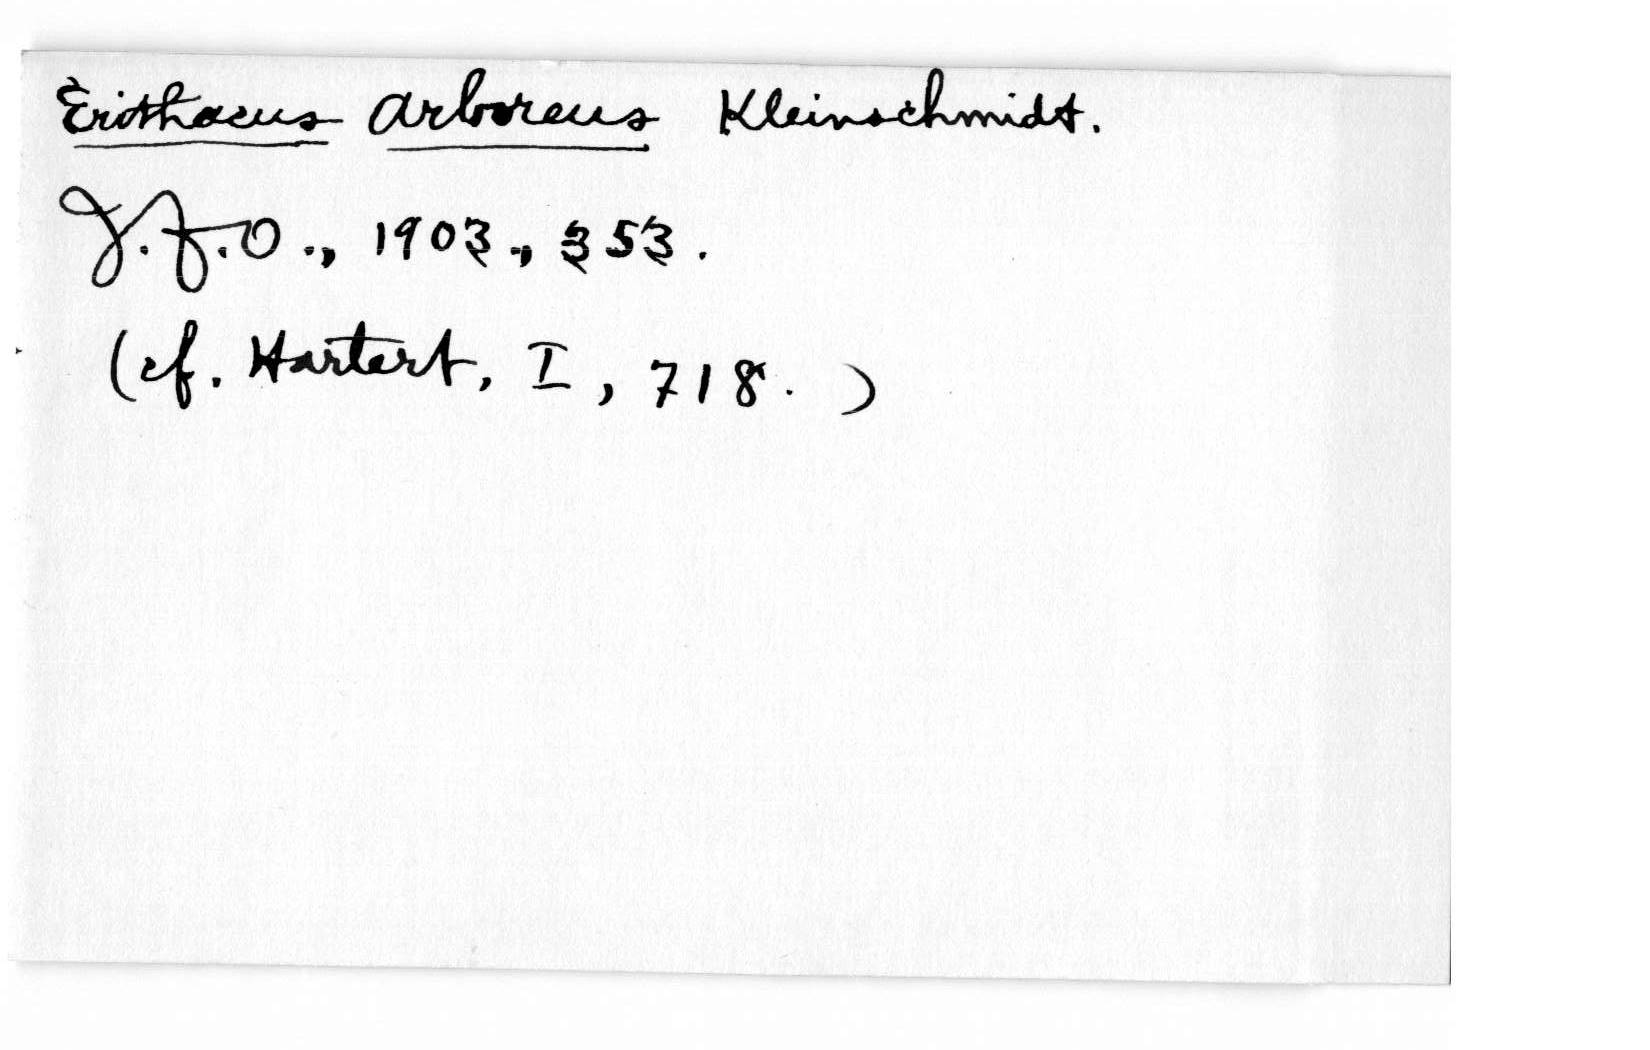 Erithacus arboreus Kleinschmidt.
J.f.O., 1903, 353.
(cf. Hartert, I, 718.)